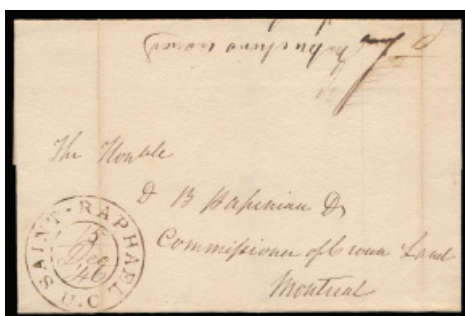 The Honble
D B Papineau
Commissioner of Crown Land
Montreal
SAINT·RAPHAEL U.C
15
Dec
46